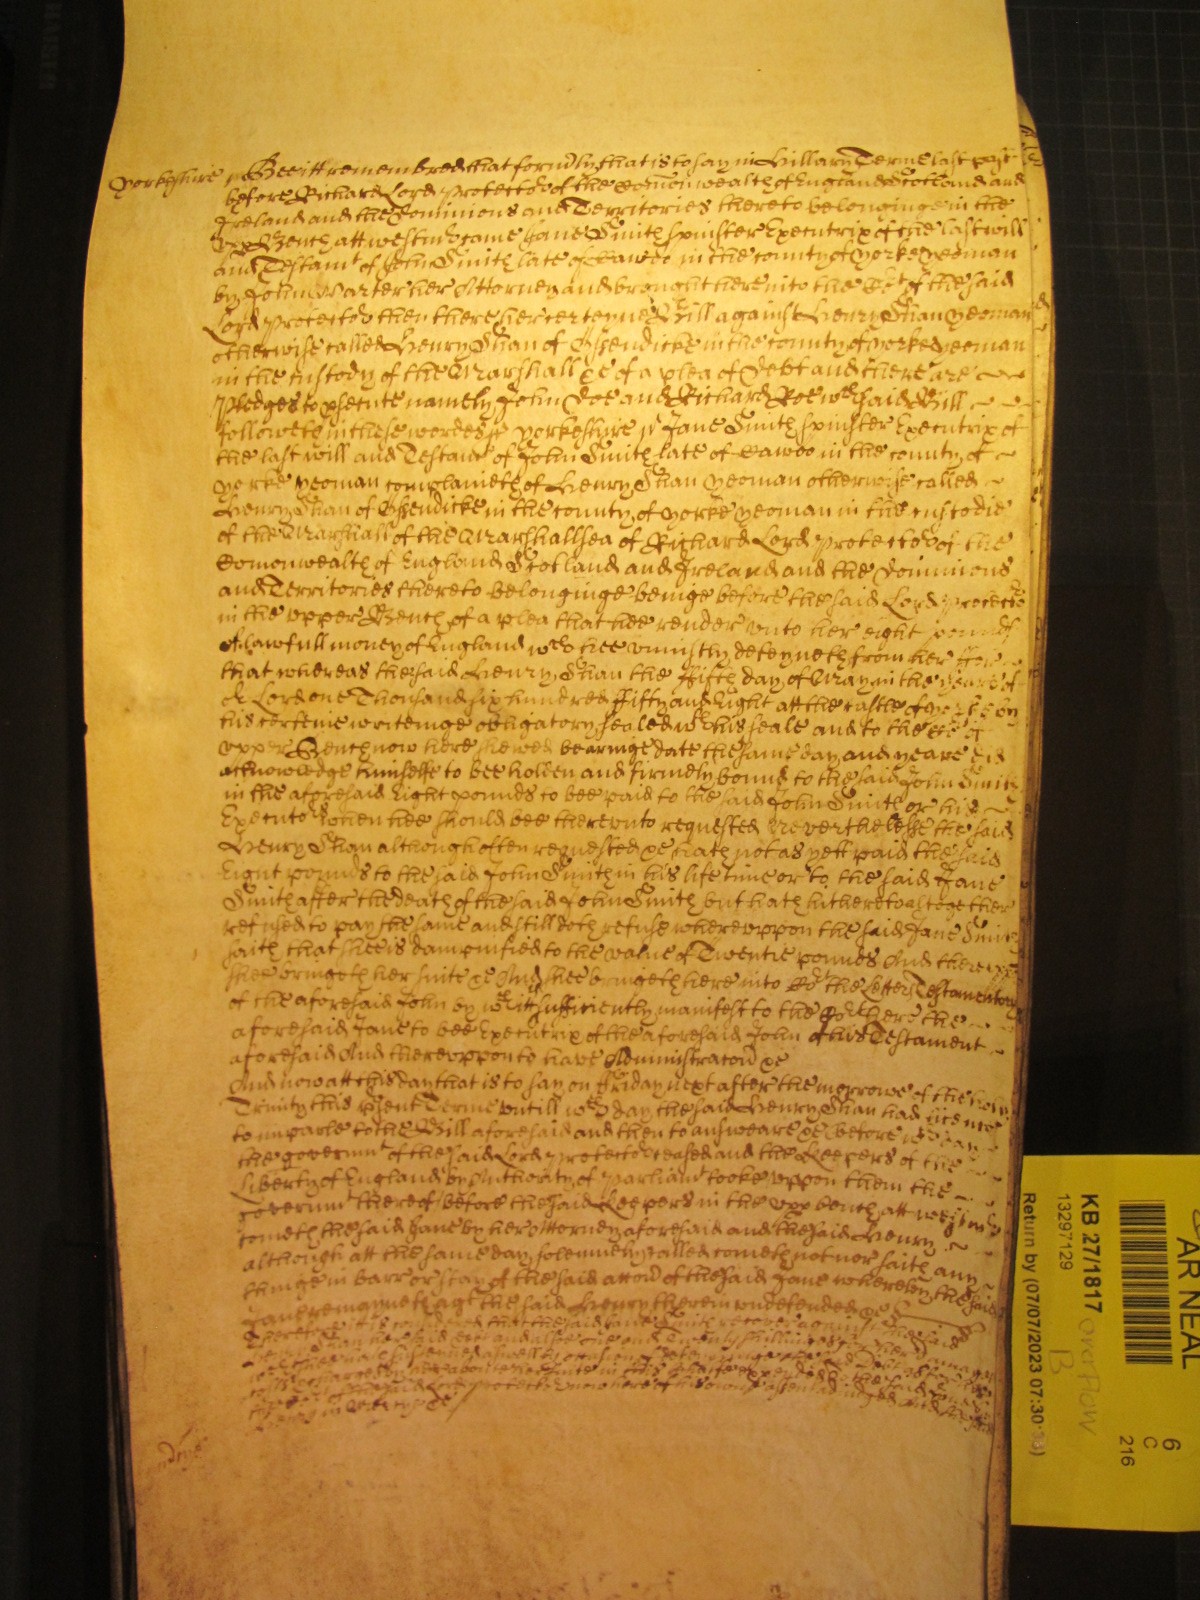 Yorkeshire ss Bee itt remembred that form'ly that is to say in Hillary Terme last past
before Richard Lord Protecto'r of the Comonwealth of England Scotland and
Ireland and the Dominions and Territories thereto belonginge in the
Upp Bench att Westm'r came Jane Smith spinster Executrix of the last will
and Testam't of John Smith late of Cawoo in the county of Yorke yeoman
by John Warter her Attorney and brought here into the Co't of the said
Lord Protecto'r then there her certeyne Bill against Henry Shan yeoman
otherwise called Henry Shan of Essendicke in the county of Yorke yeoman
in the custody of the Marshall &c of a plea of Debt and there are
Pledges to p'secute namely John Doe and Richard Roe w'ch said Bill
followeth in these wordes ss Yorkeshire ss Jane Smith spinster Executrix of
the last will and Testam't of John Smith late of Cawoo in the county of
Yorke yeoman complaineth of Henry Shan yeoman otherwise called
Henry Shan of Essendicke in the county of Yorke yeoman in the custodie
of the Marshall of the Marshallsea of Richard Lord Protecto'r of the
Comonwealth of England Scotland and Ireland and the Dominions
and Territories thereto belonginge beinge before the said Lord Protecto'r
in the upper Bench of a plea that hee render unto her eight pounds
of lawfull money of England w'ch hee uniustly deteyneth from her ffor
that whereas the said Henry Shan the ffifth day of May in the yeare of
o'r Lord one Thousand six hundred ffifty and Eight att the castle of Yorke by
his certeine writeinge obligatory sealed w'th his seale and to the Co't of
upper Bench now here shewed bearinge date the same day and yeare did
acknowledge himselfe to bee holden and firmely bound to the said John Smith
in the aforesaid Eight pounds to bee paid to the said John Smith or his
Executo'rs when hee should bee thereunto requested Neverthelesse the said
Henry Shan although often requested &c hath not as yett paid the said
Eight pounds to the said John Smith in his life time or to the said Jane
Smith after the death of the said John Smith but hath hitherto altogether
refused to pay the same and still doth refuse whereuppon the said Jane Smith
saith that shee is dampnified to the value of Twentie pounds And thereuppon
shee bringeth her suite &c And shee bringeth here into Co't the Letters Testamentory
of the aforesaid John by w'ch itt sufficiently manifest to the Co't here the
aforesaid Jane to bee Executrix of the aforesaid John of his Testament
aforesaid And thereuppon to have Administracon &c
And now att this day that is to say on ffriday next after the morrowe of the holy
Trinity this p'sent Terme untill w'ch day the said Henry Shan had licence
to imparle to the Bill aforesaid and then to answeare &c before w'ch day
the governm't of the said Lord Protecto'r ceased and the Keepers of the
Liberty of England by Authority of Parliam't tooke uppon them the
governm't thereof before the said Keepers in the upp bench att Westm'r
cometh the said Jane by her Attorney aforesaid and the said Henry
although att the same day solemnely called cometh not nor saith any
thinge in barr or stay of the said accon of the said Jane whereby the said
Jane remayneth ag't the said Henry therein undefended &c
Therefore itt is considered that the said Jane Smith recover against the said
Henry Shan her said debt and alsoe
costs and charges by her about her suite in this behalfe expended to the said Jane
Henry in mercy &c
KB 27/1817 overflow
13297129
B
Return by (07/07/2023 07:30:18)
AR NEAL
6
C
216